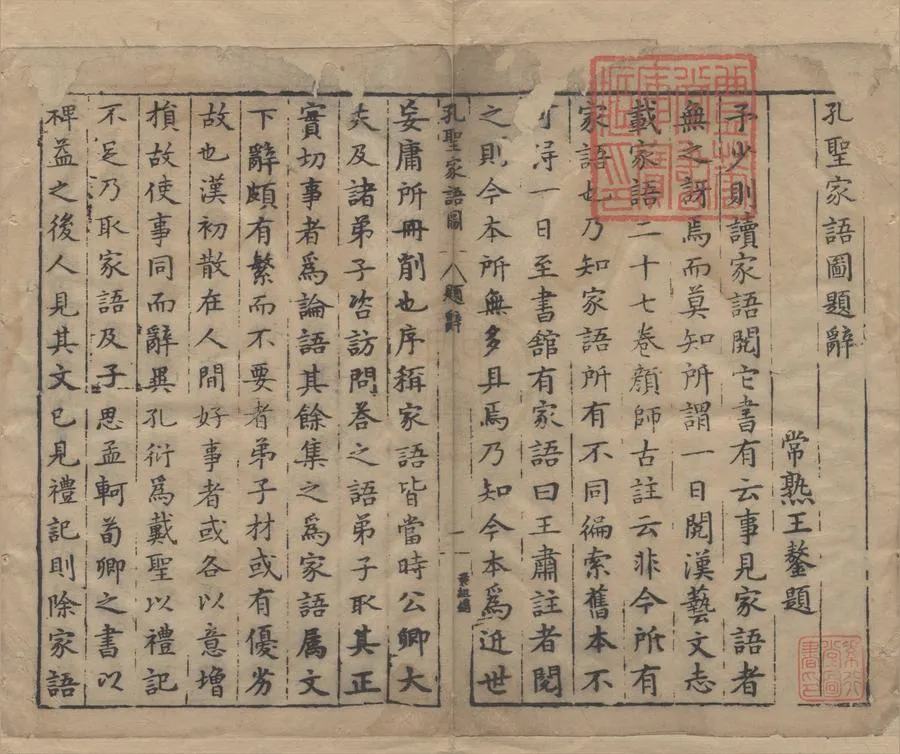 孔聖家語圖題辭
常熟王鏊題
予少則讀家語閱它書有云事見家語者
無之訝焉而莫知所謂一日閱漢藝文志
載家語二十七卷顏師古註云非今所有
家語也乃知家語所有不同徧索舊本不
可得一日至書舘有家語曰王肅註者閱
之則今本所無多具焉乃知今本爲近世
孔聖家語圖 八題辭 一
妄庸所冊削也序稱家語皆當時公卿大
夫及諸弟子咨訪問荅之語弟子取其正
實切事者爲論語其餘集之爲家語属文
下辭頗有繁而不要者弟子材或有優劣
故也漢初散在人間好事者或各以意增
損故使事同而辭異孔衍爲戴聖以禮記
不足乃取家語及子思孟軻荀卿之書以
裨益之後人見其文已見禮記則除家語